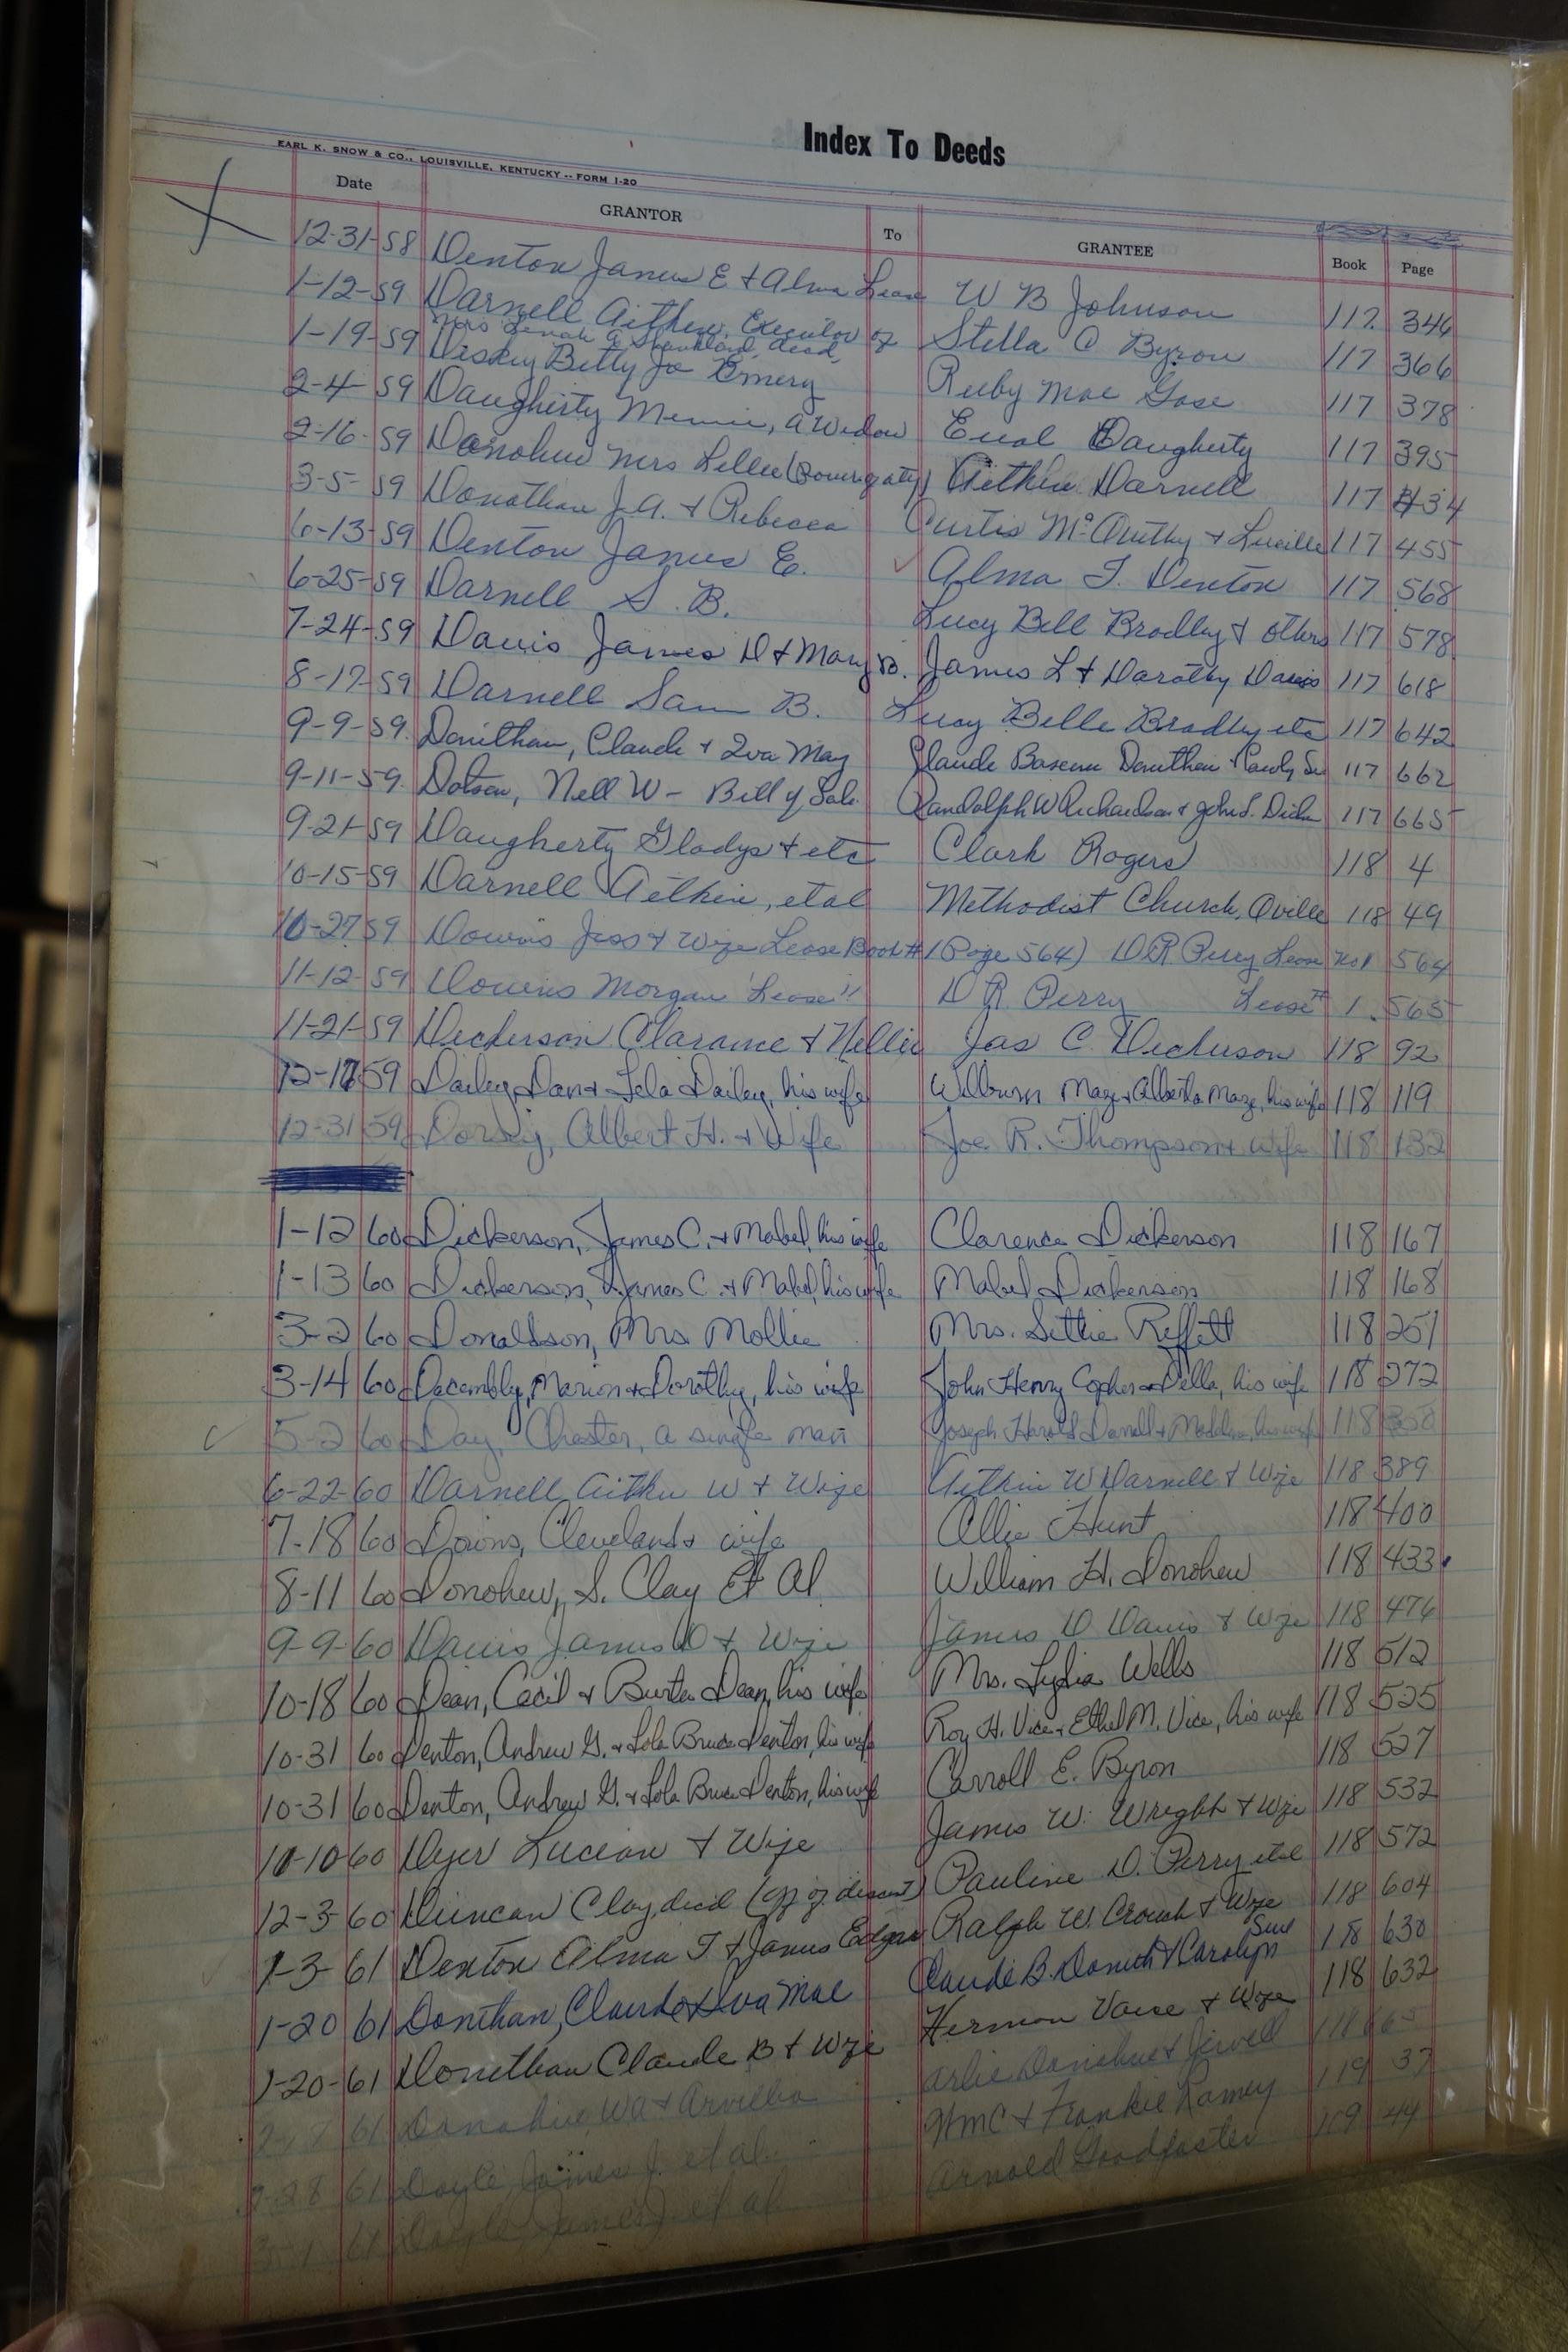 Index To Deeds
EARL K. SNOW & CO., LOUISVILLE, KENTUCKY -- FORM 1-20
Date GRANTOR To GRANTEE Book Page
12-31-58 Denton James E & Alma Lease W B Johnson 117 346
1-12-59 Darnell Aithen, Executor of Stella C Byron 117 366
Mrs A dead,
1-19-59 Diskey Betty Jo Emery Ruby Mae Gose 117 378
2-4-59 Daugherty Minnie, a Widow Eual Daugherty 117 395
2-16-59 Donohue Mrs Lillie (Power of aty) Aithen Darnell 117 434
3-5-59 Donathan J.A. & Rebecca Curtis & Lucille 117 455
6-13-59 Denton James E. Alma T. Denton 117 568
6-25-59 Darnell S. B. Lucy Bell Bradley & others 117 578
7-24-59 Davis James D & Mary B. James L & Dorothy Davis 117 618
8-17-59 Darnell Sam B. Lucy Belle Bradley etc 117 642
9-9-59 Donithan, Claude & Iva May Claude 117 662
9-11-59 Dotson, Nell W - Bill of Sale Randolph W Richardson & John S. 117 665
9-21-59 Daugherty Gladys & etc Clark Rogers 118 4
10-15-59 Darnell Aithen, etal Methodist Church, Oville 118 49
10-27 59 Downs Jess & Wife Lease Book #1 (Page 564) D R Perry Lease No 1 564
11-12-59 Downs Morgan "Lease" D R. Perry Lease # 1. 565
11-21-59 Dickerson Clarance & Nellie Jas C. Dickerson 118 92
12-17 59 Dailey, Dan & Lela Dailey, his wife Wilburn Maze & Alberta Maze, his wife 118 119
12-31 59 Dorsey, Albert H. & Wife Joe R. Thompson & wife 118 132
1-12 60 Dickerson, James C. & Mabel, his wife Clarence Dickerson 118 167
1-13 60 Dickerson, James C. & Mabel, his wife Mabel Dickerson 118 168
3-2 60 Donaldson, Mrs Mollie Mrs. Settie Reffett 118 251
3-14 60 Decembly, Marion & Dorothy, his wife John Henry Copher & Della, his wife 118 272
5-2 60 Day, Chester, a single man Joseph Harold Darnell & Madeline, his wife 118 350
6-22-60 Darnell Aithen W & Wife Aithen W Darnell & Wife 118 389
7-18 60 Downs, Cleveland & wife Allie Hunt 118 400
8-11 60 Donohew, S. Clay Et Al William H. Donohew 118 433
9-9-60 Davis James D & Wife James D Davis & Wife 118 476
10-18 60 Dean, Cecil & Burta Dean, his wife Mrs. Lydia Wells 118 512
10-31 60 Denton, Andrew G. & Lola Bruce Denton, his wife Roy H. Vice & Ethel M. Vice, his wife 118 525
10-31 60 Denton, Andrew G. & Lola Bruce Denton, his wife Carroll E. Byron 118 527
10-10-60 Dyer Lucian & Wife James W. Wright & Wife 118 532
12-3-60 Duncan Clay, decd (aff of descent) Pauline D. Perry etal 118 572
1-3-61 Denton Alma T & James Edgar Ralph W. Crouch & Wife 118 604
1-20 61 Donithan, Claude & Iva Mae Claude B. Donith & Carolyn Sue 118 630
1-20-61 Donithan Claude B & Wife Herman Vance & Wife 118 632
61 Donahue, & Arvilla Arlie Donahue & Jewell
2-28 61 Doyle James J. et al. Wm C & Frankie Ramey 119 37
3-1 61 Doyle James J. et al Arnold Goodpaster 119 44